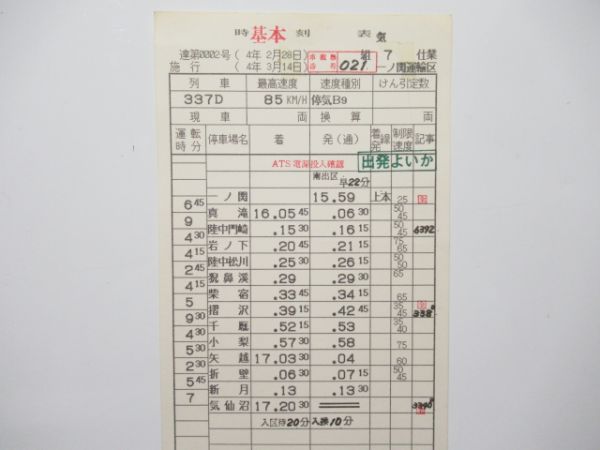 時 基本 刻 表 気
達第0002号( 4年 2月28日) 組 7 仕業
施 行 ( 4年 3月14日) 021 一ノ関運輸区
列 車 最高速度 速度種別 けん引定数
337D 85KM/H 停気B9
現 車 両 換 算 両
運転時分 停車場名 着 発(通) 着発線 制限速度 記事
ATS電源投入確認 出発よいか
南出区
早22分
一ノ関 15.59 上本 25
6 45
真 滝 16.05 45 .06 30 50 45
9
陸中門崎 .15 30 .16 15 50 45 6392
4 30
岩ノ下 .20 45 .21 15 75 65
4 15
陸中松川 .25 30 .26 15 50 45
2 45
猊鼻渓 .29 .29 30 65
4 15
柴 宿 .33 45 .34 15 65
5
摺 沢 .39 15 .42 45 35 45 338
9 30
千 厩 .52 15 .53 35 40
4 30
小 梨 .57 30 .58
5 30
矢 越 17.03 30 .04 60
2 30
折 壁 .06 30 .07 15 50 45
5 45
新 月 .13 .13 30
7
気仙沼 17.20 30 3340
入区待20分 入換10分